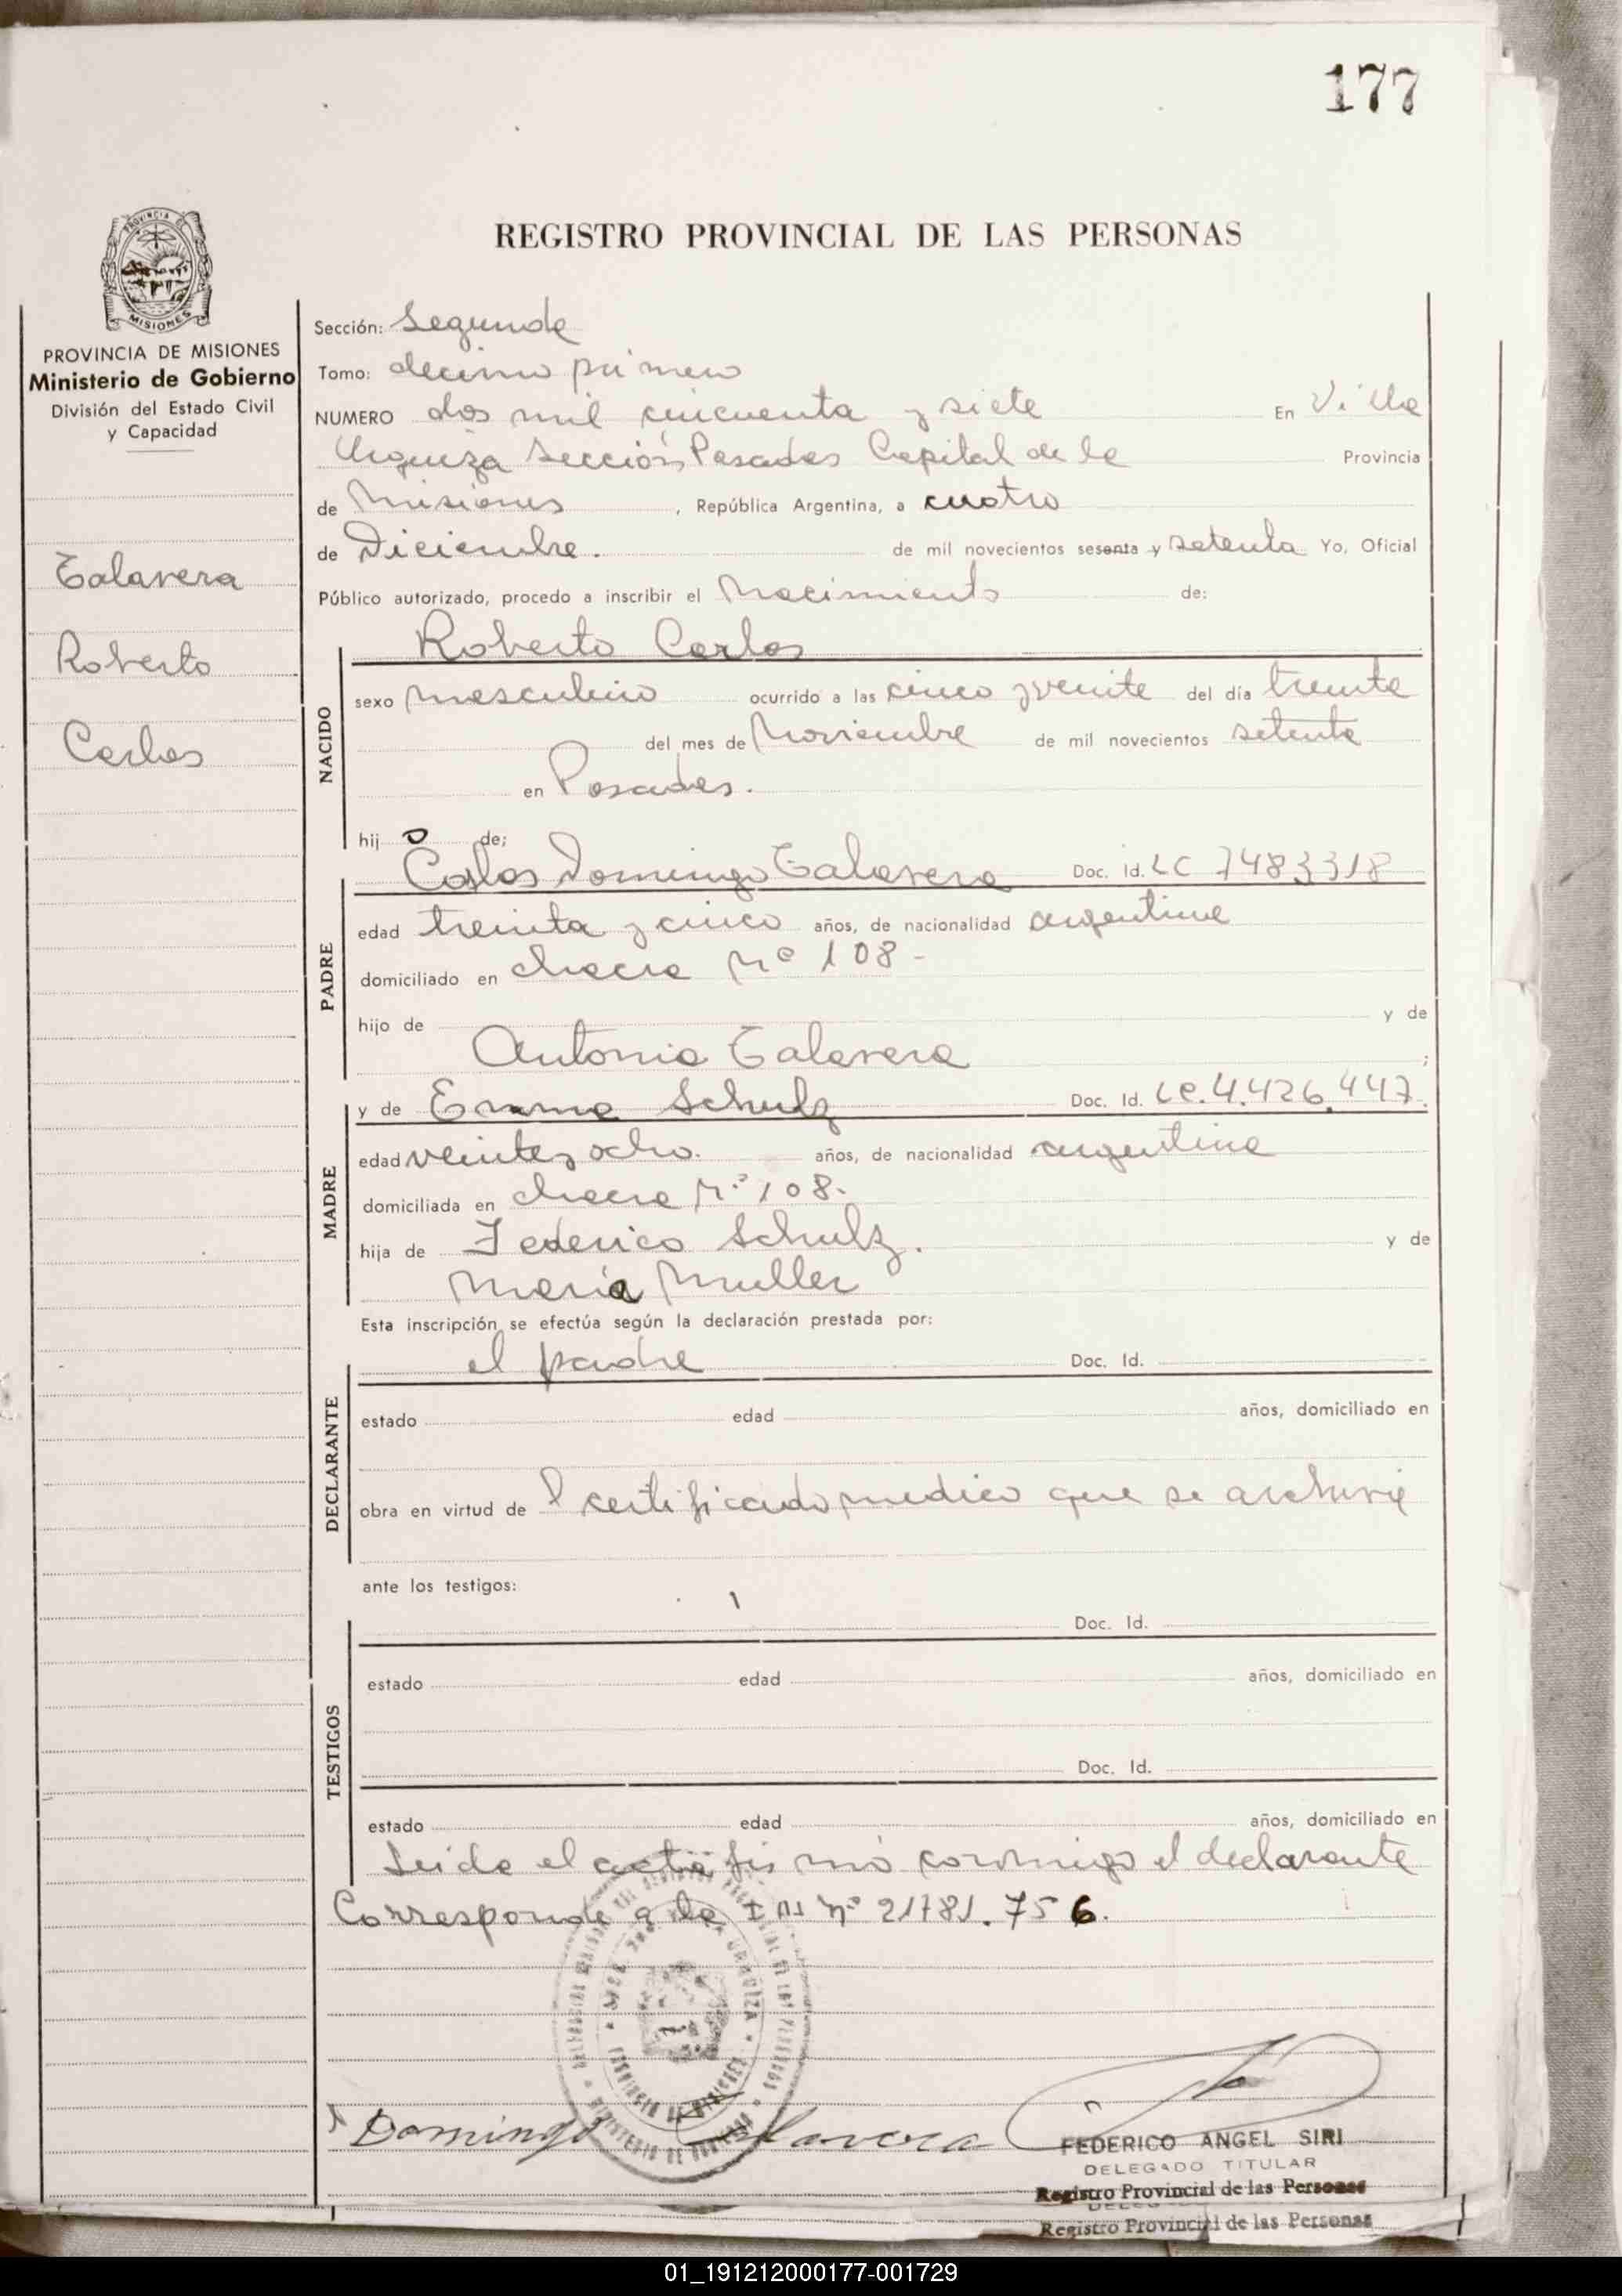 177
REGISTRO PROVINCIAL DE LAS PERSONAS
PROVINCIA DE
MISIONES
PROVINCIA DE MISIONES
Ministerio de Gobierno
División del Estado Civil
y Capacidad
Talavera
Roberto
Carlos
Sección: Segunda
Tomo: decimo primero
NUMERO dos mil cincuenta y siete En Villa
Urquiza Sección Posadas Capital de la Provincia
de Misiones, República Argentina, a cuatro
de Diciembre. de mil novecientos sesenta y setenta Yo, Oficial
Público autorizado, procedo a inscribir el Nacimiento de:
Roberto Carlos
NACIDO
sexo masculino ocurrido a las cinco y veinte del día treinta
del mes de Noviembre de mil novecientos setenta
en Posadas.
hijo de;
Carlos Domingo Talavera Doc. id. LC 7483318
PADRE
edad treinta y cinco años, de nacionalidad argentina
domiciliado en chacra Nº 108 -
hijo de y de
Antonia Talavera ;
y de Emma Schulz Doc. Id. LC. 4.426.447.
MADRE
edad veinte y ocho. años, de nacionalidad argentina
domiciliada en chacra Nº 108.
hija de Federico Schulz. y de
María Muller
Esta inscripción se efectúa según la declaración prestada por:
el padre Doc. Id.
DECLARANTE
estado edad años, domiciliado en
obra en virtud de l certificado medico que se archiva
ante los testigos:
Doc. Id.
TESTIGOS
estado edad años, domiciliado en
Doc. Id.
estado edad años, domiciliado en
Leida el acta firmó conmigo el declarante
Corresponde a la nº 21781.756.
URQUIZA
PROVINCIA DE MISIONES
MINISTERIO DE
Domingo Talavera
FEDERICO ANGEL SIRI
DELEGADO TITULAR
Registro Provincial de las Personas
Registro Provincial de las Personas
01_191212000177-001729